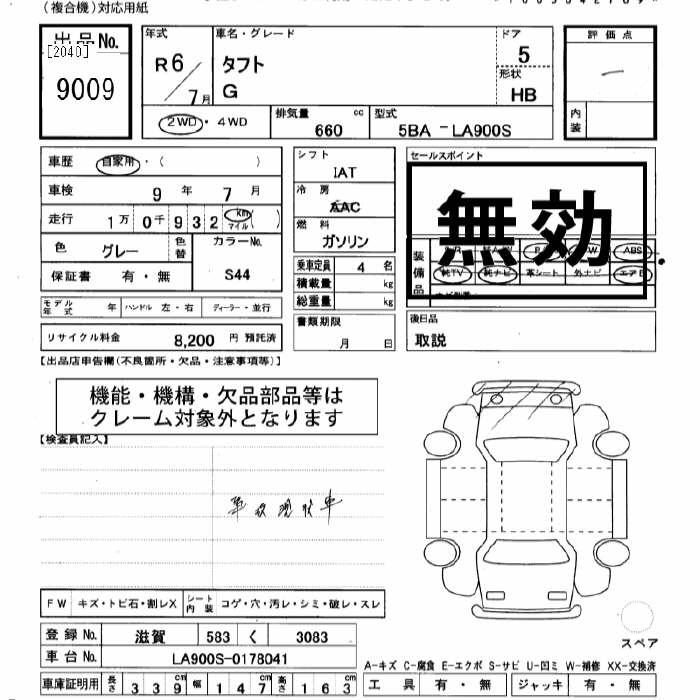 (複合機)対応用紙
出品No.
[2040]
9009
年式
R6/7月
車名・グレード
タフト
G
ドア
5
形状
HB
評価点
内装
2WD・4WD
排気量 cc
660
型式
5BA -LA900S
車歴 自家用・( )
車検 9年 7月
走行 1万 0千 9 3 2 km マイル ( )
色 グレー
色替
カラーNo.
S44
保証書 有・無
シフト
IAT
冷房
AAC
燃料
ガソリン
乗車定員 4 名
積載量 kg
総重量 kg
セールスポイント
無効
装備品
ABS
純TV 純ナビ 革シート 外ナビ エアB
モデル年式 年 ハンドル 左・右 ディーラー・並行
リサイクル料金 8,200 円 預託済
書類期限
月 日
後日品
取説
【出品店申告欄(不良箇所・欠品・注意事項等)】
機能・機構・欠品部品等は
クレーム対象外となります
【検査員記入】
FW キズ・トビ石・割レX シート内装 コゲ・穴・汚レ・シミ・破レ・スレ
登録No. 滋賀 583 く 3083
車台No. LA900S-0178041
車庫証明用 長さ 3 3 9 幅 1 4 7 高さ 1 6 3
スペア
A-キズ C-腐食 E-エクボ S-サビ U-凹ミ W-補修 XX-交換済
工具 有・無 ジャッキ 有・無